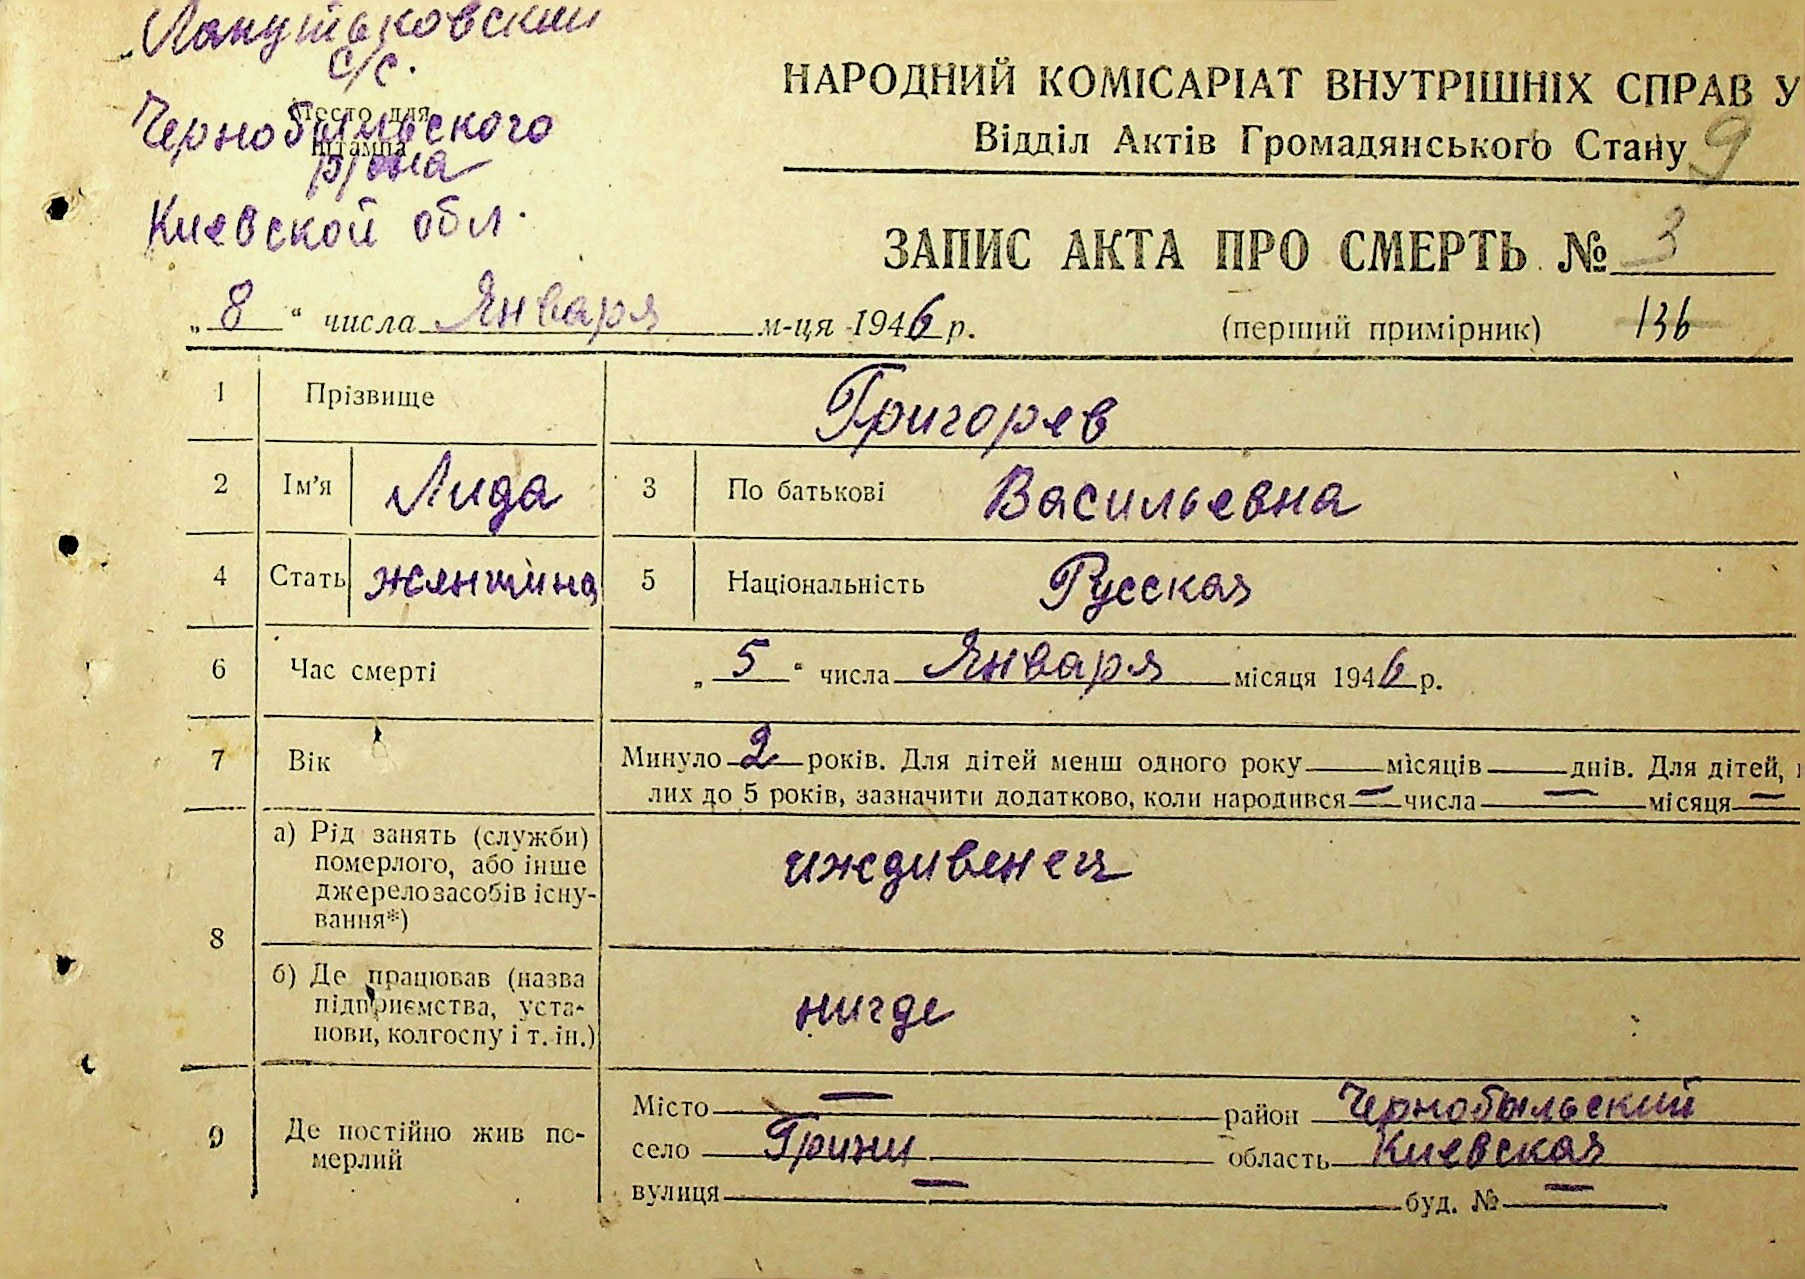 Лапутьковский
с/с.
Место для
штампа
Чернобыльского
р/она
Киевской обл.
НАРОДНИЙ КОМІСАРІАТ ВНУТРІШНІХ СПРАВ У
Відділ Актів Громадянського Стану 9
ЗАПИС АКТА ПРО СМЕРТЬ № 3
„ 8 “ числа Января м-ця 1946 р. (перший примірник) 136
1 Прізвище Григорев
2 Ім'я Лида 3 По батькові Васильевна
4 Стать женщина 5 Національність Русская
6 Час смерті „ 5 “ числа Января місяця 1946 р.
7 Вік Минуло 2 років. Для дітей менш одного року місяців днів. Для дітей,
лих до 5 років, зазначити додатково, коли народився — числа — місяця —
8 а) Рід занять (служби)
померлого, або інше
джерело засобів існу-
вання*)
иждивенец
б) Де працював (назва
підприємства, уста-
нови, колгоспу і т. ін.)
нигде
9 Де постійно жив по-
мерлий
Місто — район Чернобыльский
село Грини область Киевская
вулиця — буд. № —